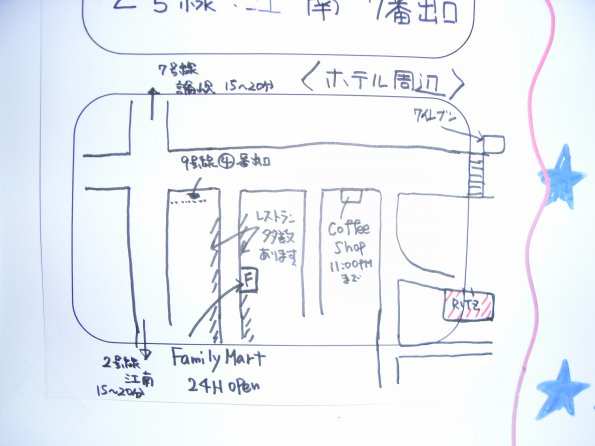 2号線:江南7番出口
<ホテル周辺>
7号線
論峴 15~20分
7イレブン
9号線④番出口
レストラン
多数
あります
Coffee
shop
11:00PM
まで
F
RITZ
FamilyMart
24H open
2号線
江南
15~20分